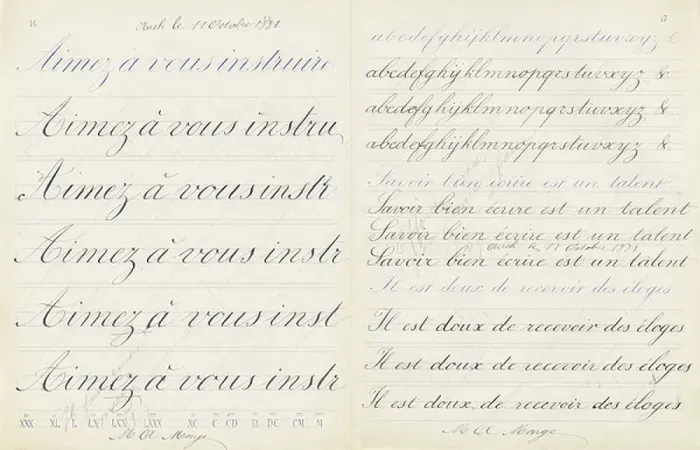 16
Auch le 11 Octobre 1891
Aimez à vous instruire
Aimez à vous instru
Aimez à vous instr
Aimez à vous instr
Aimez à vous inst
Aimez à vous instr
XXX XL L LX LXX LXXX XC C CD D DC CM M
M A Monge
17
abcdefghijklmnopqrstuvxyz &
abcdefghijklmnopqrstuvxyz &
abcdefghijklmnopqrstuvxyz &
abcdefghijklmnopqrstuvxyz &
Savoir bien écrire est un talent.
Savoir bien écrire est un talent
Savoir bien écrire est un talent
Auch le 11 Octobre 1891
Savoir bien écrire est un talent
Il est doux de recevoir des éloges.
Il est doux de recevoir des éloges
Il est doux de recevoir des éloges
Il est doux de recevoir des éloges
M A Monge